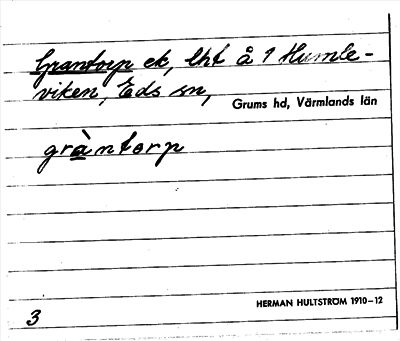 Grantorp ek, lht å 1 Humle-
viken, Eds sn, Grums hd, Värmlands län
gràntorp
HERMAN HULTSTRÖM 1910–12
3